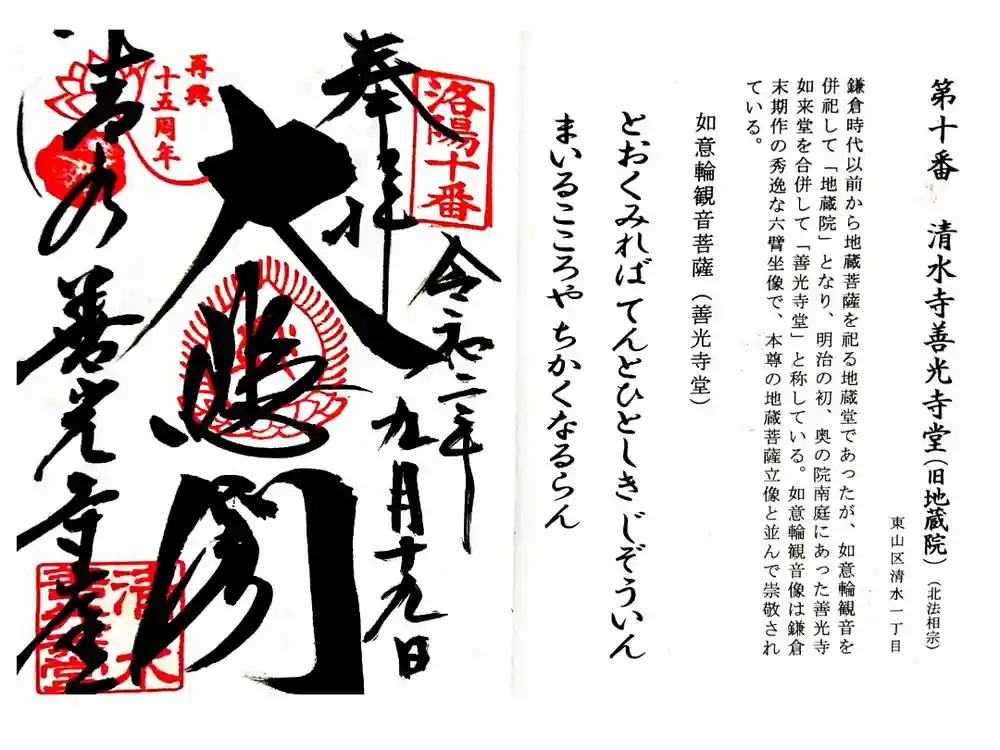 第十番　清水寺善光寺堂（旧地蔵院）（北法相宗）
東山区清水一丁目
鎌倉時代以前から地蔵菩薩を祀る地蔵堂であったが、如意輪観音を
併祀して「地蔵院」となり、明治の初、奥の院南庭にあった善光寺
如来堂を合併して「善光寺堂」と称している。如意輪観音像は鎌倉
末期作の秀逸な六臂坐像で、本尊の地蔵菩薩立像と並んで崇敬され
ている。
如意輪観音菩薩（善光寺堂）
とおくみれば てんとひとしき じぞういん
まいるこころや ちかくなるらん
洛陽十番
令和二年
九月十九日
奉拝
大悲閣
再興
十五周年
清水 善光寺堂
清水
善光寺堂